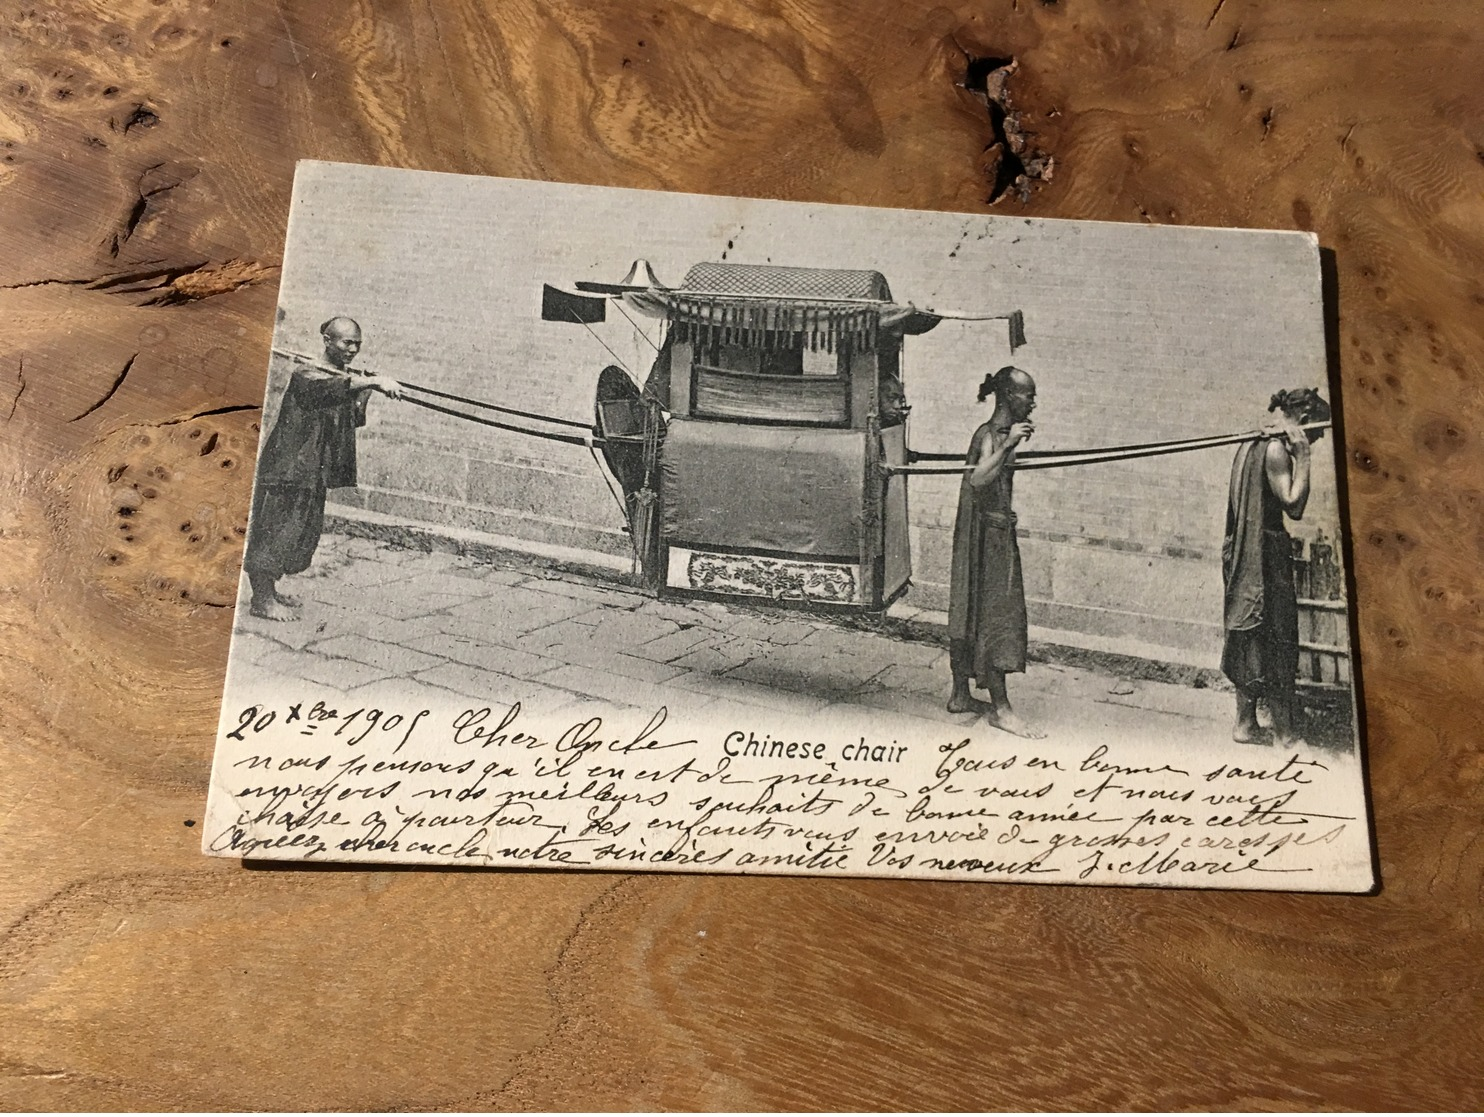 20 Xbre 1905 Cher Oncle Chinese chair Tous en bonne santé
nous pensons qu'il en est de même de vous et nous vous
envoyons nos meilleurs souhaits de bonne année par cette
chaise à porteur. Les enfants vous envoie de grosses caresses
Agréez cher oncle notre sincères amitié Vos neveux J. Marie